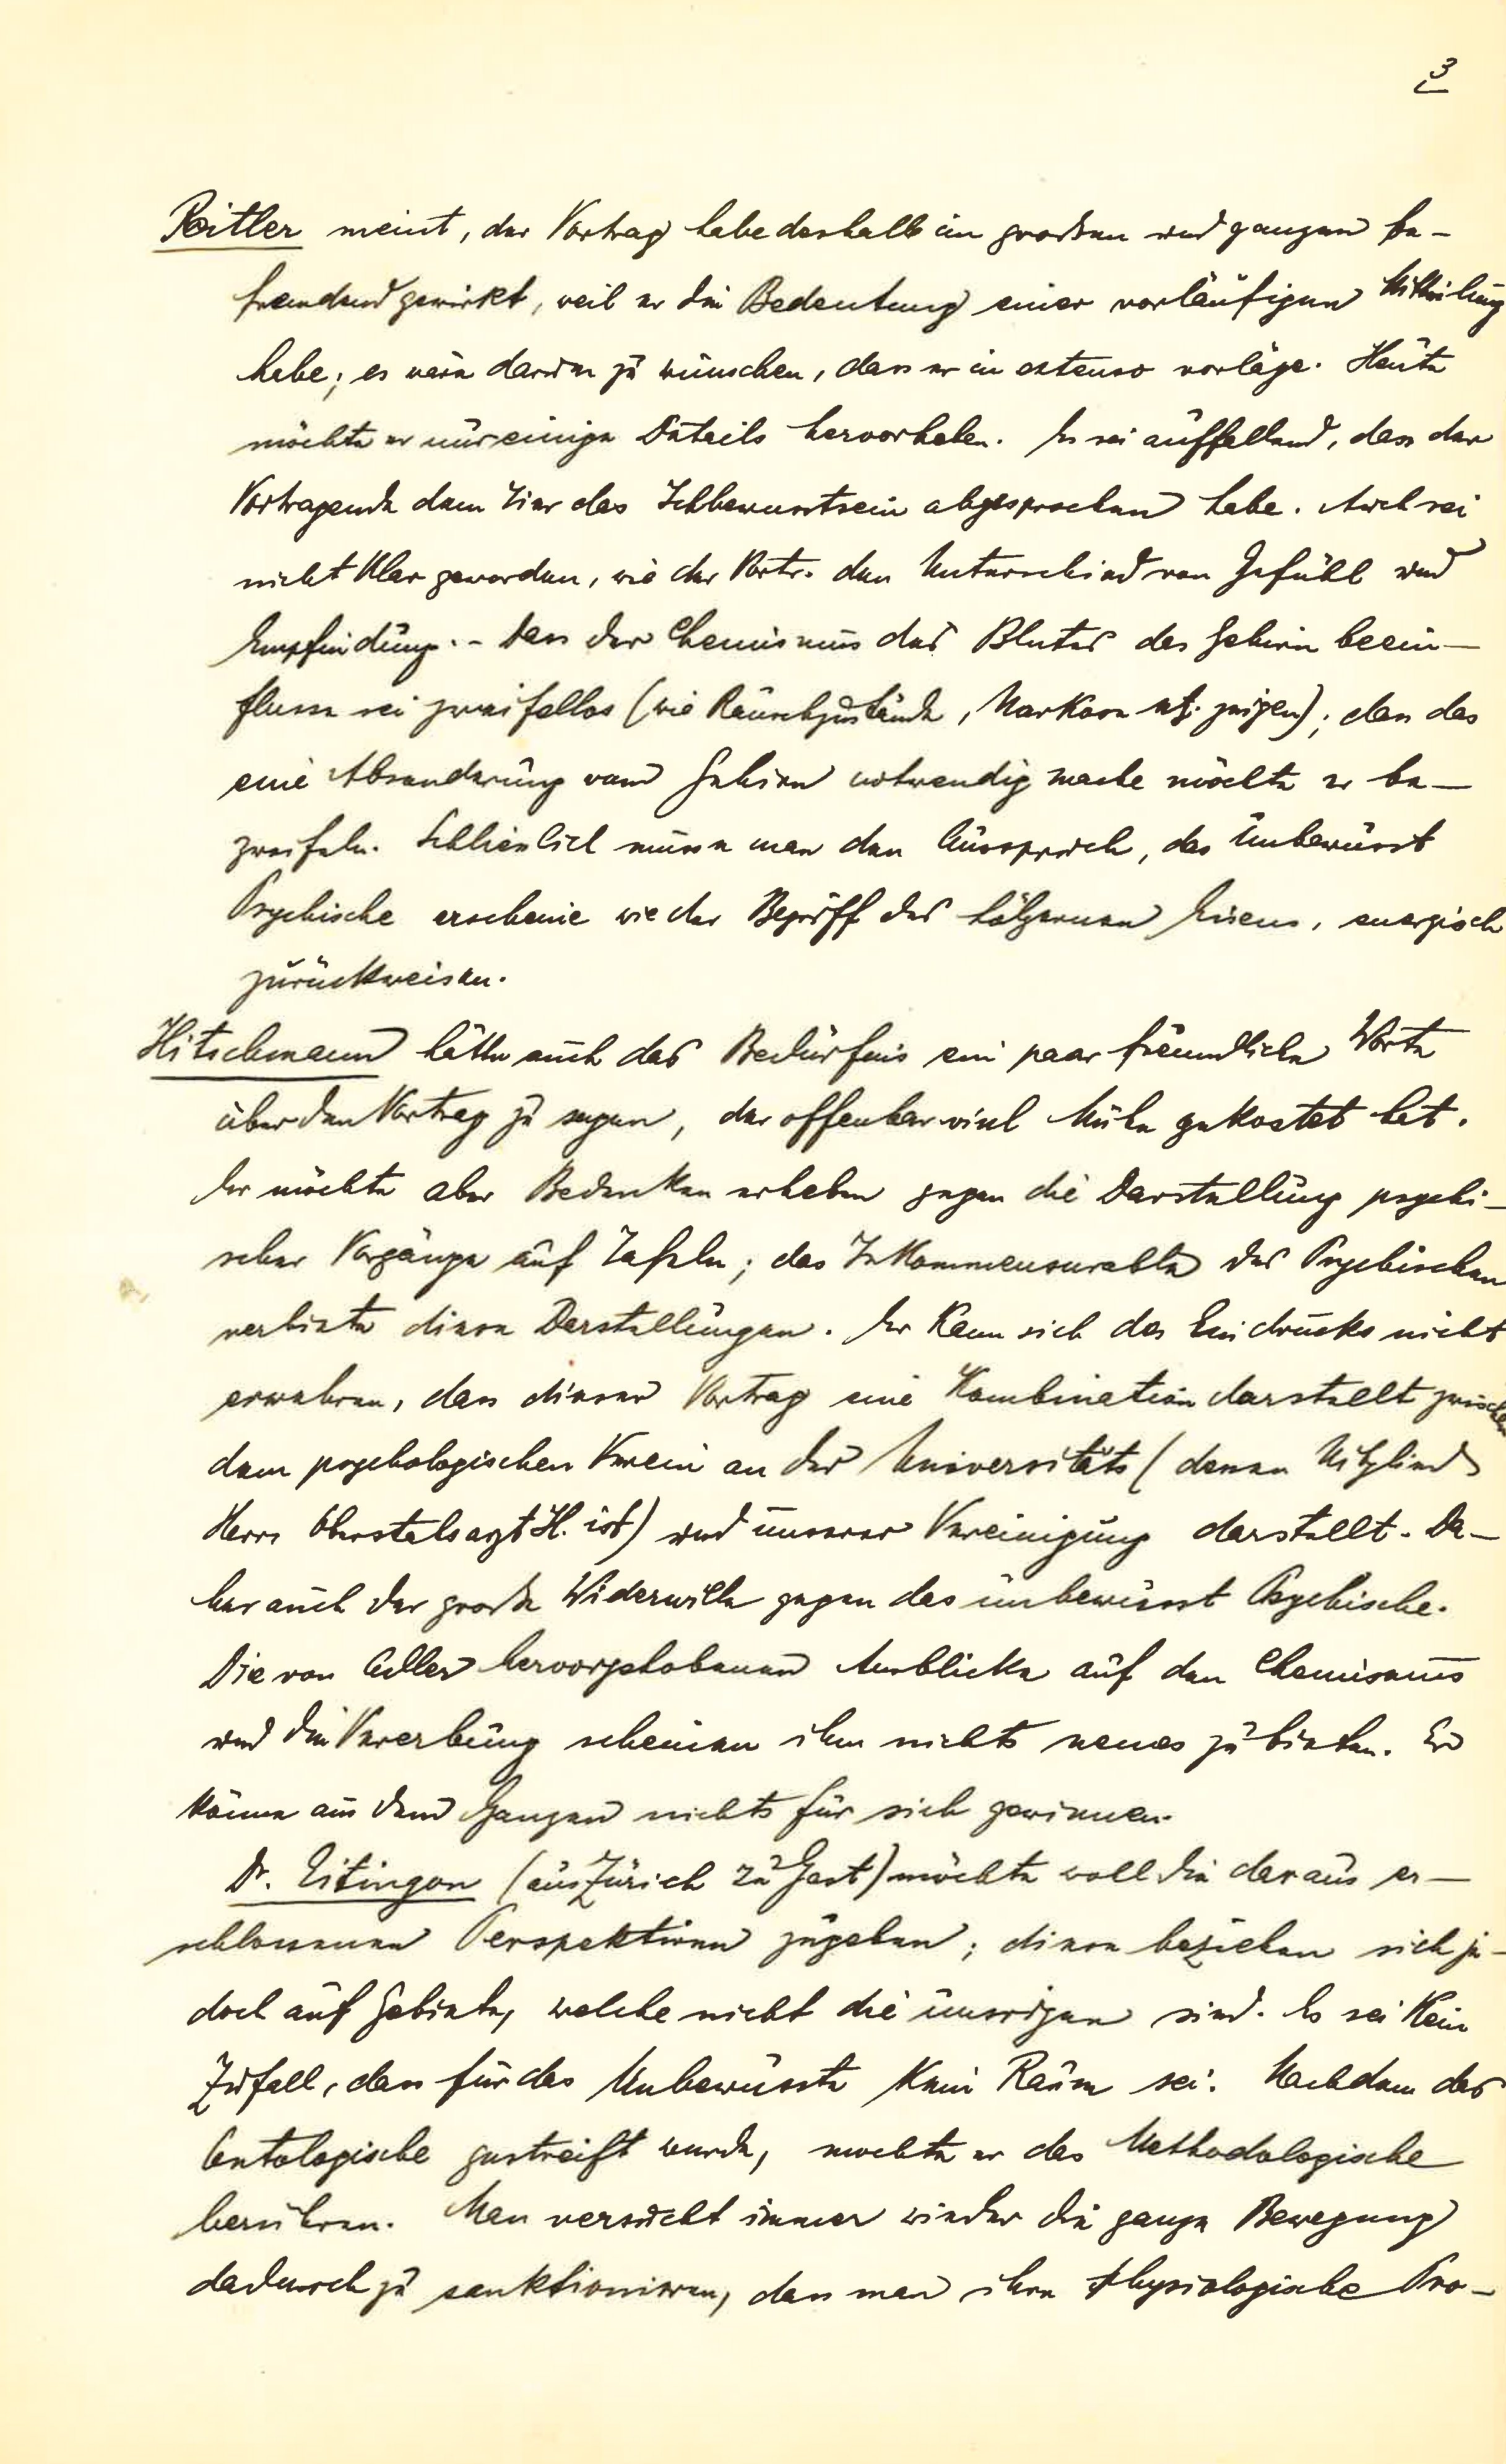 3
Reitler meint, der Vortrag habe deshalb im großen und ganzen be-
fremdend gewirkt, weil er die Bedeutung einer vorläufigen Mitteilung
habe; es wäre darum zu wünschen, dass er in extenso vorläge. Heute
möchte er nur einige Details hervorheben. Es sei auffallend, dass der
Vortragende dem Tier das Ichbewusstsein abgesprochen habe. Auch sei
nicht klar geworden, wie der Vortr. den Unterschied von Gefühl und
Empfindung. - Dass der Chemismus des Blutes das Gehirn beein-
flusse sei zweifellos (wie Rauschzustände, Narkose etz. zeigen); dass das
eine Absonderung vom Gehirn notwendig mache möchte er be-
zweifeln. Schliesslich müsse man den Ausspruch, das Unbewusst
Psychische erscheine wie der Begriff des hölzernen Eisens, energisch
zurückweisen.
Hitschmann hätte auch das Bedürfnis ein paar freundliche Worte
über den Vortrag zu sagen, der offenbar viel Mühe gekostet hat.
Er möchte aber Bedenken erheben gegen die Darstellung psychi-
scher Vorgänge auf Tafeln; das Inkommensurable des Psychischen
verbiete diese Darstellungen. Er kann sich des Eindrucks nicht
erwehren, dass dieser Vortrag eine Kombination darstellt zwischen
dem psychologischen Verein an der Universität (dessen Mitglied
Herr Oberstabsarzt H. ist) und unserer Vereinigung darstellt. Da-
her auch der große Widerwille gegen das unbewusst Psychische.
Die von Adler hervorgehobenen Ausblicke auf den Chemismus
und die Vererbung scheinen ihm nichts neues zu bieten. Er
könne aus dem Ganzen nichts für sich gewinnen.
Dr. Eitingon (aus Zürich zu Gast) möchte woll die daraus er-
schlossenen Perspektiven zugeben; diese beziehen sich je-
doch auf Gebiete, welche nicht die unsrigen sind. Es sei kein
Zufall, dass für das Unbewusste kein Raum sei. Nachdem das
Ontologische gestreift wurde, möchte er das Methodologische
berühren. Man versucht immer wieder die ganze Bewegung
dadurch zu sanktionieren, dass man ihre physiologische Pro-